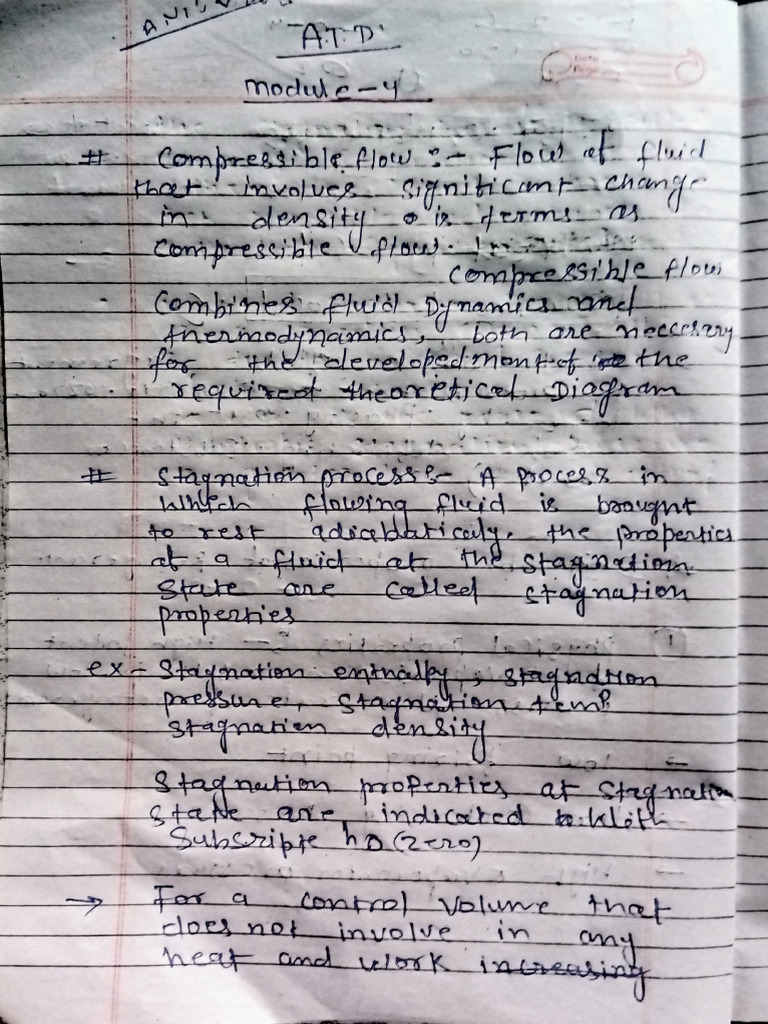 A.T.D
Module-4
# Compressible flow :- Flow of fluid
that involves significant change
in density is terms as
compressible flow.
compressible flow
Combines fluid Dynamics and
thermodynamics, both are neccesary
for the developedment of the
required theoretical Diagram
# Stagnation process:- A process in
which flowing fluid is brought
to rest adiabatically. the properties
of a fluid at the stagnation
state are called stagnation
properties
ex - Stagnation enthalpy, stagnation
pressure, stagnation temp.
stagnation density
Stagnation properties at stagnation
state are indicated with
Subscripte ho (zero)
→ For a control volume that
does not involve in any
heat and work increasing